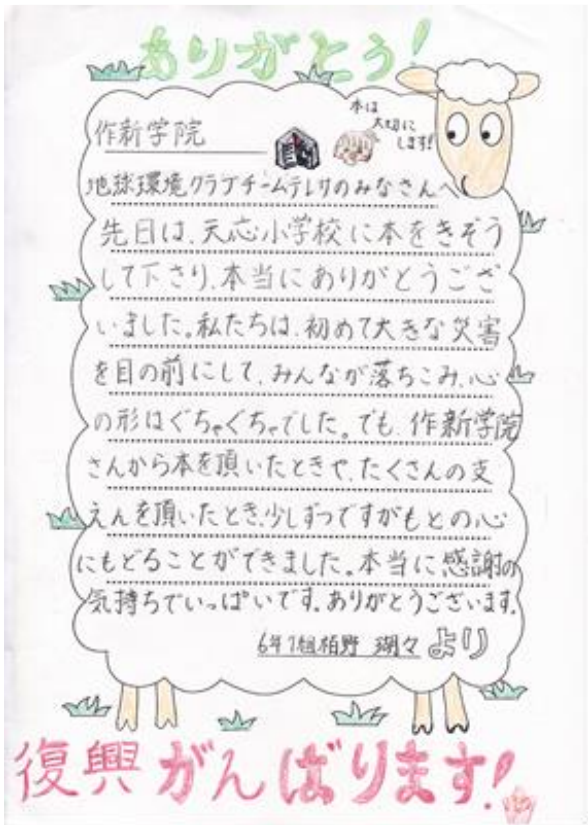 ありがとう!
作新学院
本は
大切に
します!
地球環境クラブチームテレサのみなさんへ
先日は、天応小学校に本をきぞう
して下さり、本当にありがとうござ
いました。私たちは、初めて大きな災害
を目の前にして、みんなが落ちこみ、心
の形はぐちゃぐちゃでした。でも、作新学院
さんから本を頂いたときや、たくさんの支
えんを頂いたとき、少しずつですがもとの心
にもどることができました。本当に感謝の
気持ちでいっぱいです。ありがとうございます。
6年1組栢野 瑚々 より
復興がんばります!